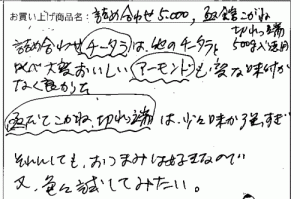 お買い上げ商品名：詰め合わせ5,000, 缶詰こがね
切れっ端
500g入り
詰め合わせチータラは、他のチータラと
比べ大変おいしい アーモンドも変な味付が
なく良かった
こがね、切れっ端は、少々味が強すぎ
それにしても、おつまみは好きなので
又、色々試してみたい。